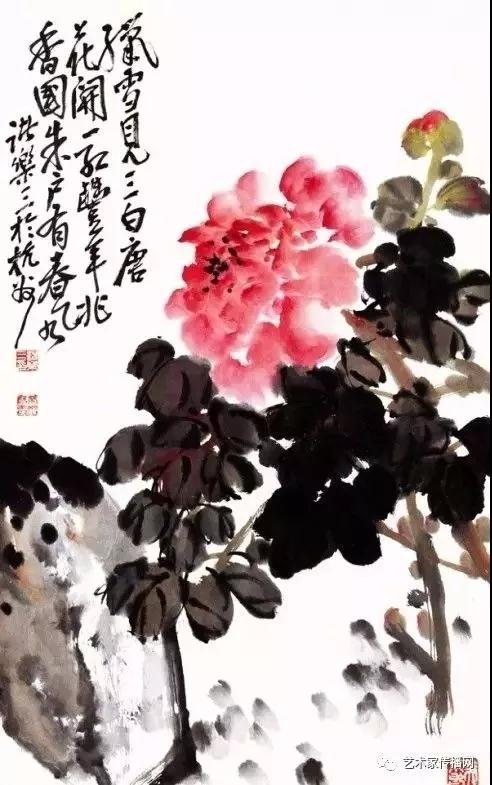 臘雪見三白唐
花開一紅豐年兆
香國朱戶有春風
諸樂三於杭州
艺术家传播网